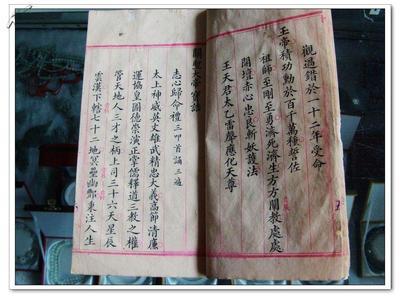 觀過錯於一十二年受命
王帝積功勳於百千萬種誓佐
祖師至剛至勇濟死濟生方方闡教處處
開壇赤心忠良斬妖護法
王天君太乙雷聲應化天尊
關聖大帝寶誥
志心歸命禮 三叩首誦三遍
太上神威英文雄武精忠大義高節清廉
運協皇圖德崇演正掌儒釋道三教之權
管天地人三才之柄上司三十六天星辰
雲漢下轄七十二地冥壘幽酆秉注人生